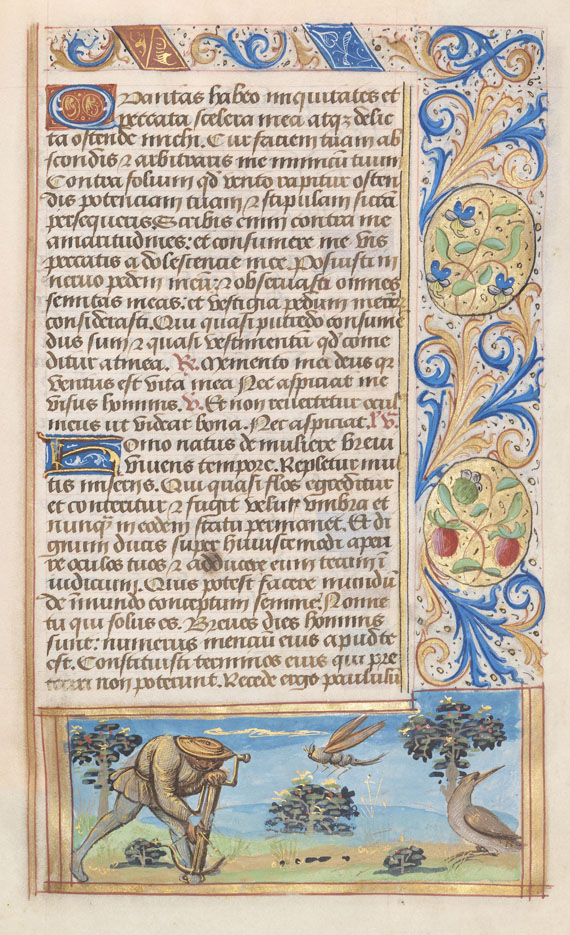 Quantas habeo iniquitates et
peccata scelera mea atqȝ delic
ta ostende michi. Cur faciem tuam ab
scondis ⁊ arbitraris me inimicū tuum
Contra folium qd vento rapitur osten
dis potenciam tuam ⁊ stipulam siccā
persequeris. Scribis enim contra me
amaritudines: et consumere me vis
peccatis adolescentie mee. Posuisti in
neruo pedem meū: ⁊ obseruasti omnes
semitas meas: et vestigia pedum meoꝝ
considerasti. Qui quasi putredo consume
dus sum ⁊ quasi vestimentū qd come
ditur a tinea. R. Memento mei deus qr
ventus est vita mea Nec aspiciat me
visus hominis. V. Et non reuertetur ocul
meus ut videat bona. Nec aspiciat.
Homo natus de muliere breui
viuens tempore. Repletur mul
tis miseriis. Qui quasi flos egreditur
et conteritur ⁊ fugit velut vmbra et
nunqȝ in eodem statu permanet. Et di
gnum ducis super huiuscemodi aperi
re oculos tuos ⁊ adducere eum tecum ī
iudicium. Quis potest facere mundū
de īmundo conceptum semine. Nonne
tu qui solus es. Breues dies hominis
sunt: numerus mensiū eius apud te
est. Constituisti terminos eius qui pre
teriri non poterunt. Recede ergo paululū